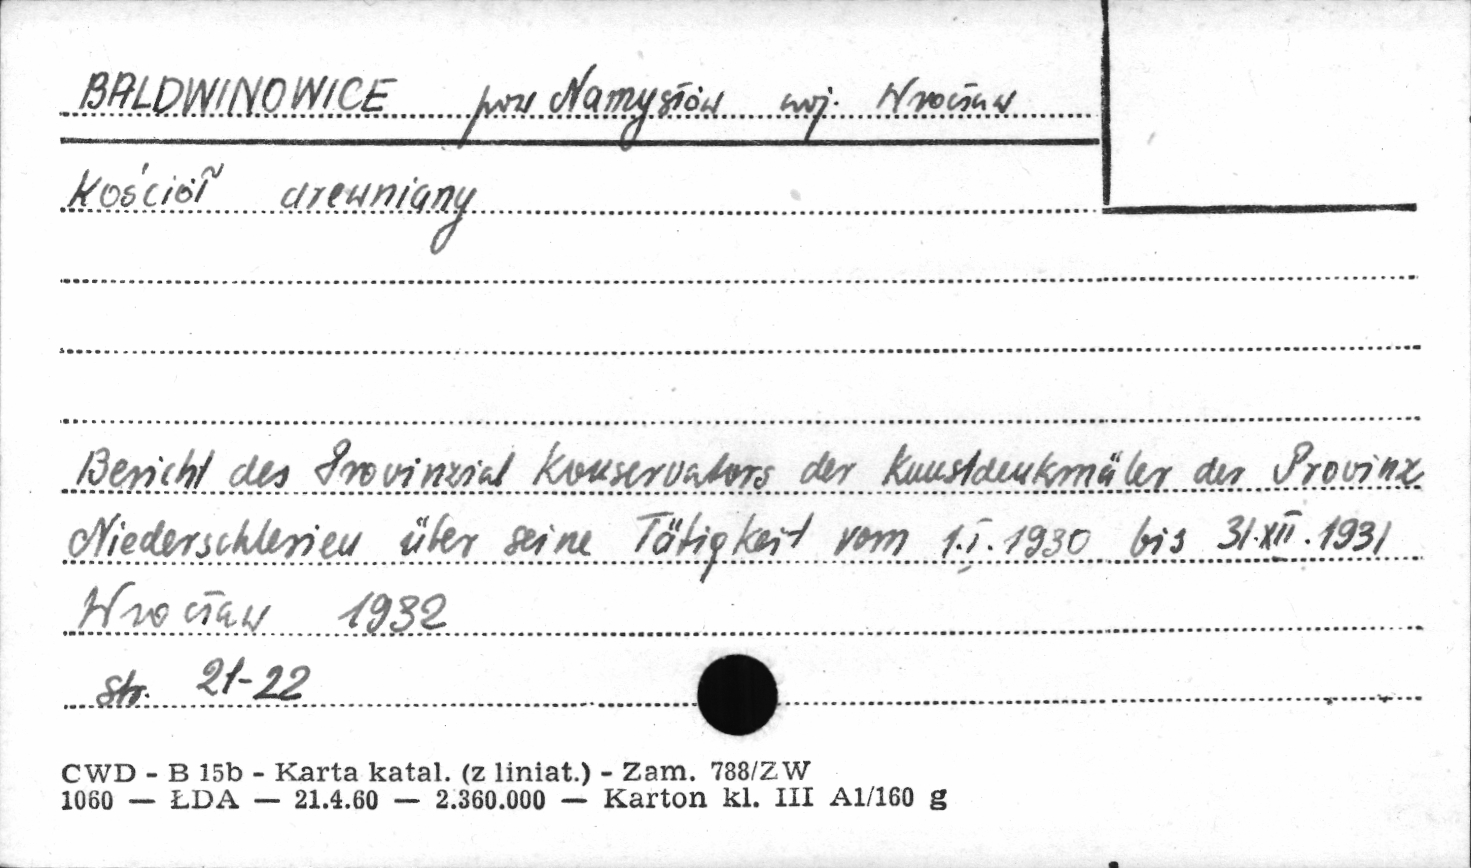 BALDWINOWICE pow Namysłów woj. Wrocław
Kościół drewniany
Bericht des Provinzial Konservators der Kunstdenkmäler der Provinz
Niederschlesien über seine Tätigkeit vom 1.I.1930 bis 31.XII.1931
Wrocław 1932
str. 21-22
CWD - B 15b - Karta katal. (z liniat.) - Zam. 788/ZW
1060 — ŁDA — 21.4.60 — 2.360.000 — Karton kl. III A1/160 g